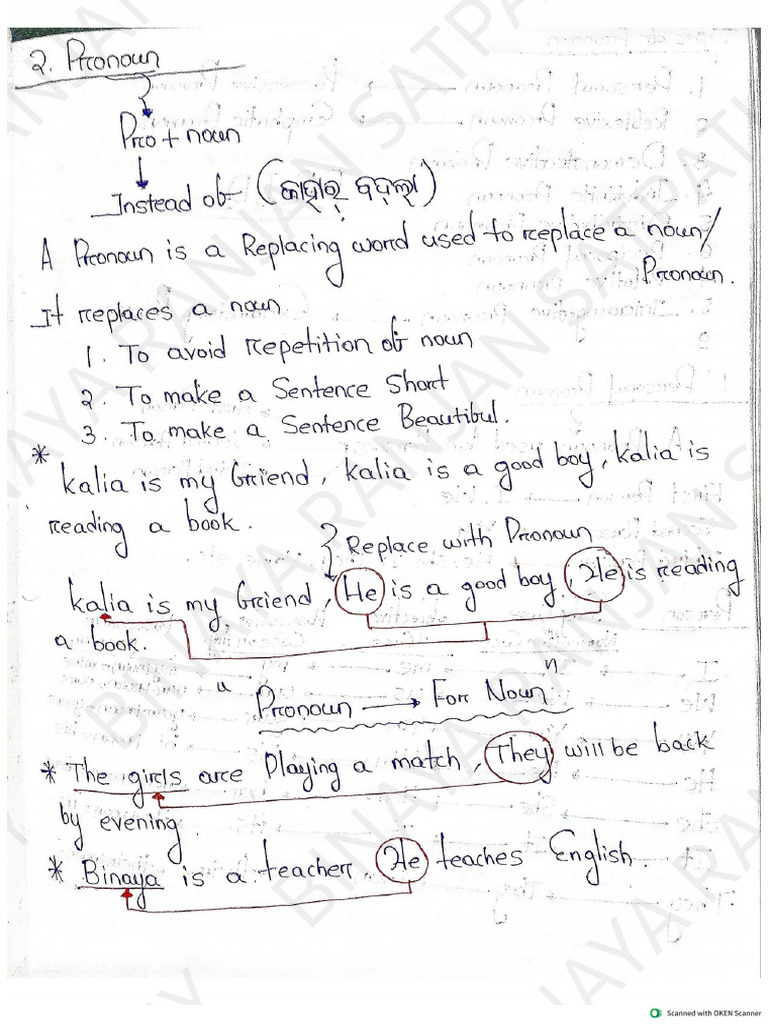 2. Pronoun
Pro + noun
Instead of (କାହାର ବଦଳା)
A Pronoun is a Replacing word used to replace a noun/
Pronoun.
It replaces a noun
1. To avoid repetition of noun
2. To make a Sentence Short
3. To make a Sentence Beautiful.
* Kalia is my friend, Kalia is a good boy, Kalia is
reading a book.
Replace with Pronoun
Kalia is my friend, He is a good boy, He is reading
a book.
" Pronoun → For Noun "
* The girls are Playing a match, They will be back
by evening.
* Binaya is a teacher. He teaches English.
BINAYA RANJAN SATPATHY
Scanned with OKEN Scanner